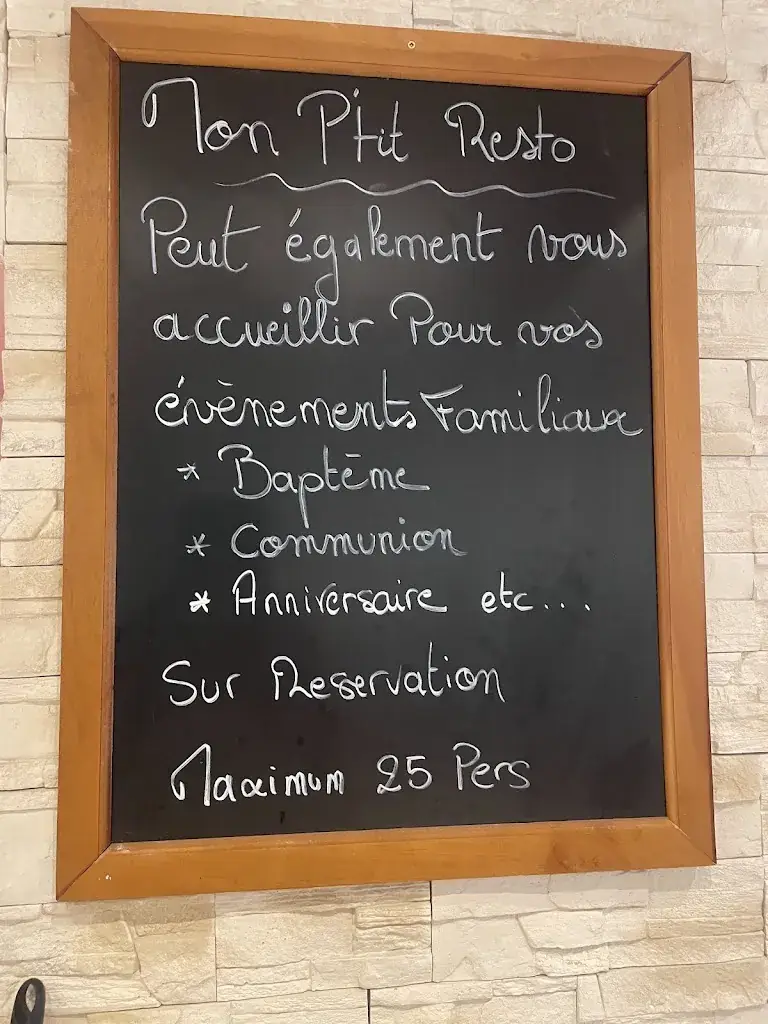 Mon P'tit Resto
Peut également vous
accueillir Pour vos
évènements Familiaux
* Baptême
* Communion
* Anniversaire etc....
Sur Reservation
Maximum 25 Pers